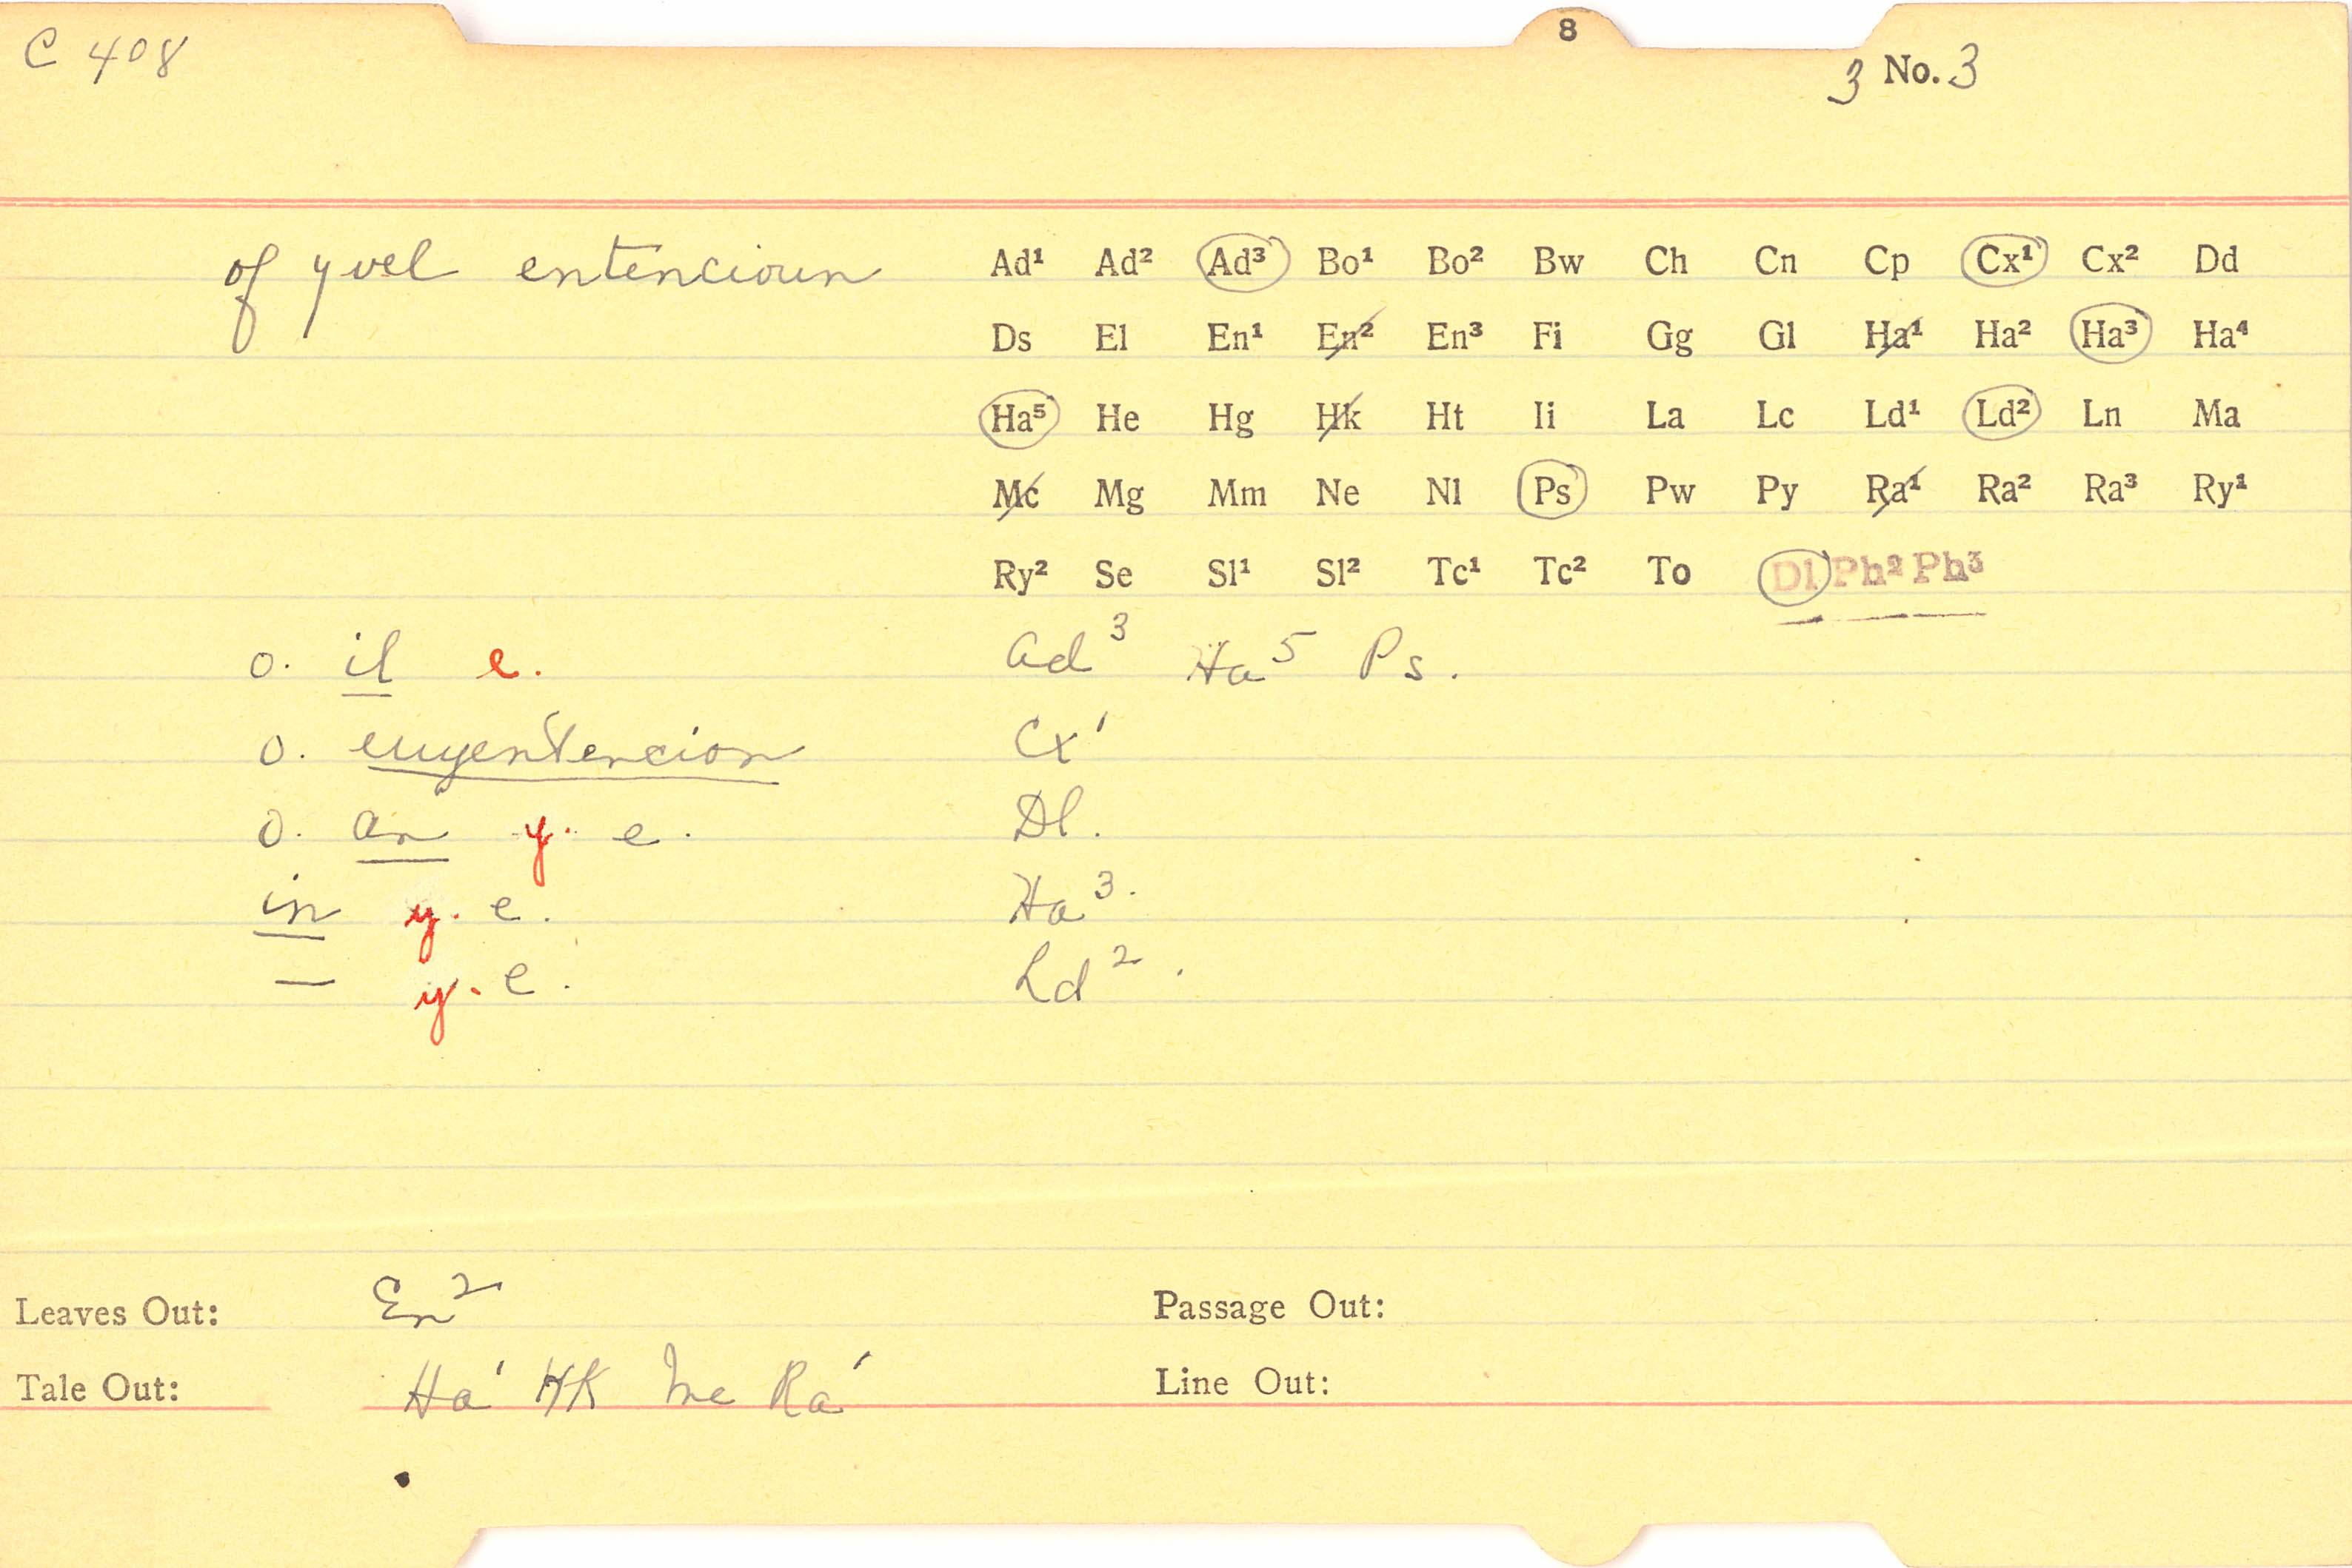 C 408
8
3 No. 3
of yvel entencioun
Ad¹ Ad² Ad³ Bo¹ Bo² Bw Ch Cn Cp Cx¹ Cx² Dd
Ds El En¹ En² En³ Fi Gg Gl Ha¹ Ha² Ha³ Ha⁴
Ha⁵ He Hg Hk Ht Ii La Lc Ld¹ Ld² Ln Ma
Mc Mg Mm Ne Nl Ps Pw Py Ra¹ Ra² Ra³ Ry¹
Ry² Se Sl¹ Sl² Tc¹ Tc² To Dl Ph² Ph³
o. il e. Ad³ Ha⁵ Ps.
o. euyentencion Cx¹
o. an y. e. Dl.
in y. e. Ha³.
— y. e. Ld².
Leaves Out: En² Passage Out:
Tale Out: Ha¹ Hk Mc Ra¹ Line Out: